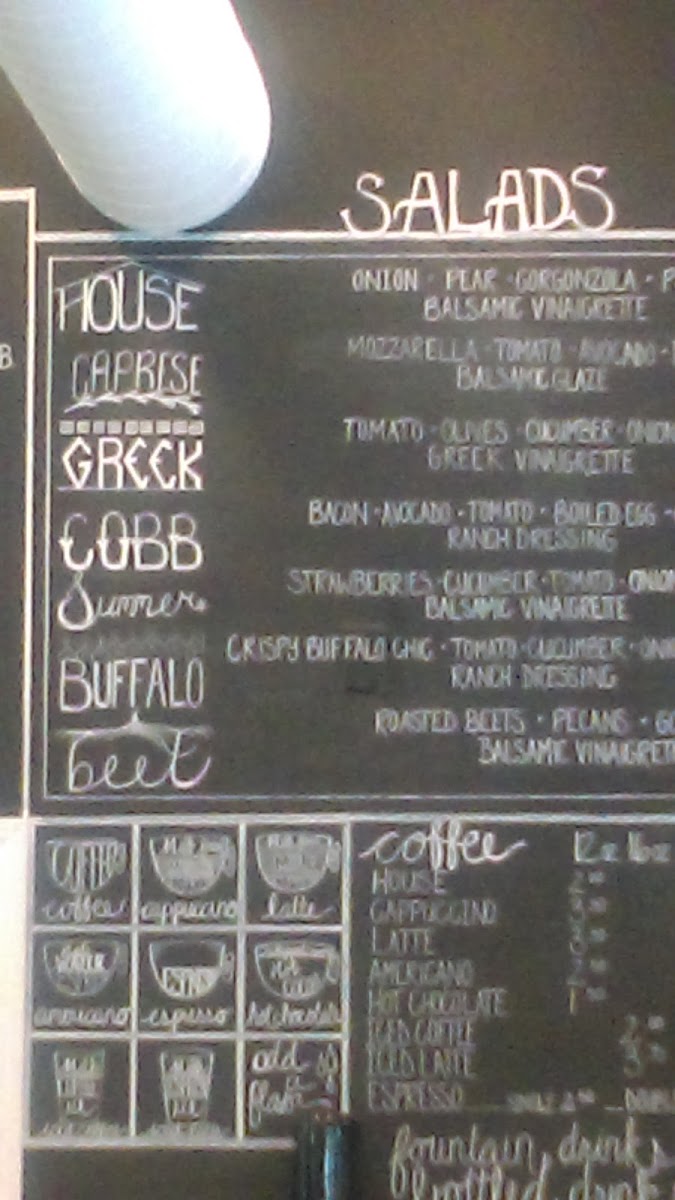 SALADS
HOUSE
ONION · PEAR · GORGONZOLA · P
BALSAMIC VINAIGRETTE
CAPRESE
MOZZARELLA · TOMATO · AVOCADO ·
BALSAMIC GLAZE
GREEK
TOMATO · OLIVES · CUCUMBER · ONION
GREEK VINAIGRETTE
COBB
BACON · AVOCADO · TOMATO · BOILED EGG ·
RANCH DRESSING
Summer
STRAWBERRIES · CUCUMBER · TOMATO · ONION
BALSAMIC VINAIGRETTE
BUFFALO
CRISPY BUFFALO CHIC · TOMATO · CUCUMBER · ONI
RANCH DRESSING
beet
ROASTED BEETS · PECANS · GO
BALSAMIC VINAIGRETTE
B
COFFEE
coffee
cappuccino
latte
americano
espresso
hot chocolate
add
flavor
coffee 12oz 16oz
HOUSE
CAPPUCCINO
LATTE
AMERICANO
HOT CHOCOLATE
ICED COFFEE
ICED LATTE
ESPRESSO
fountain drinks
bottled drink